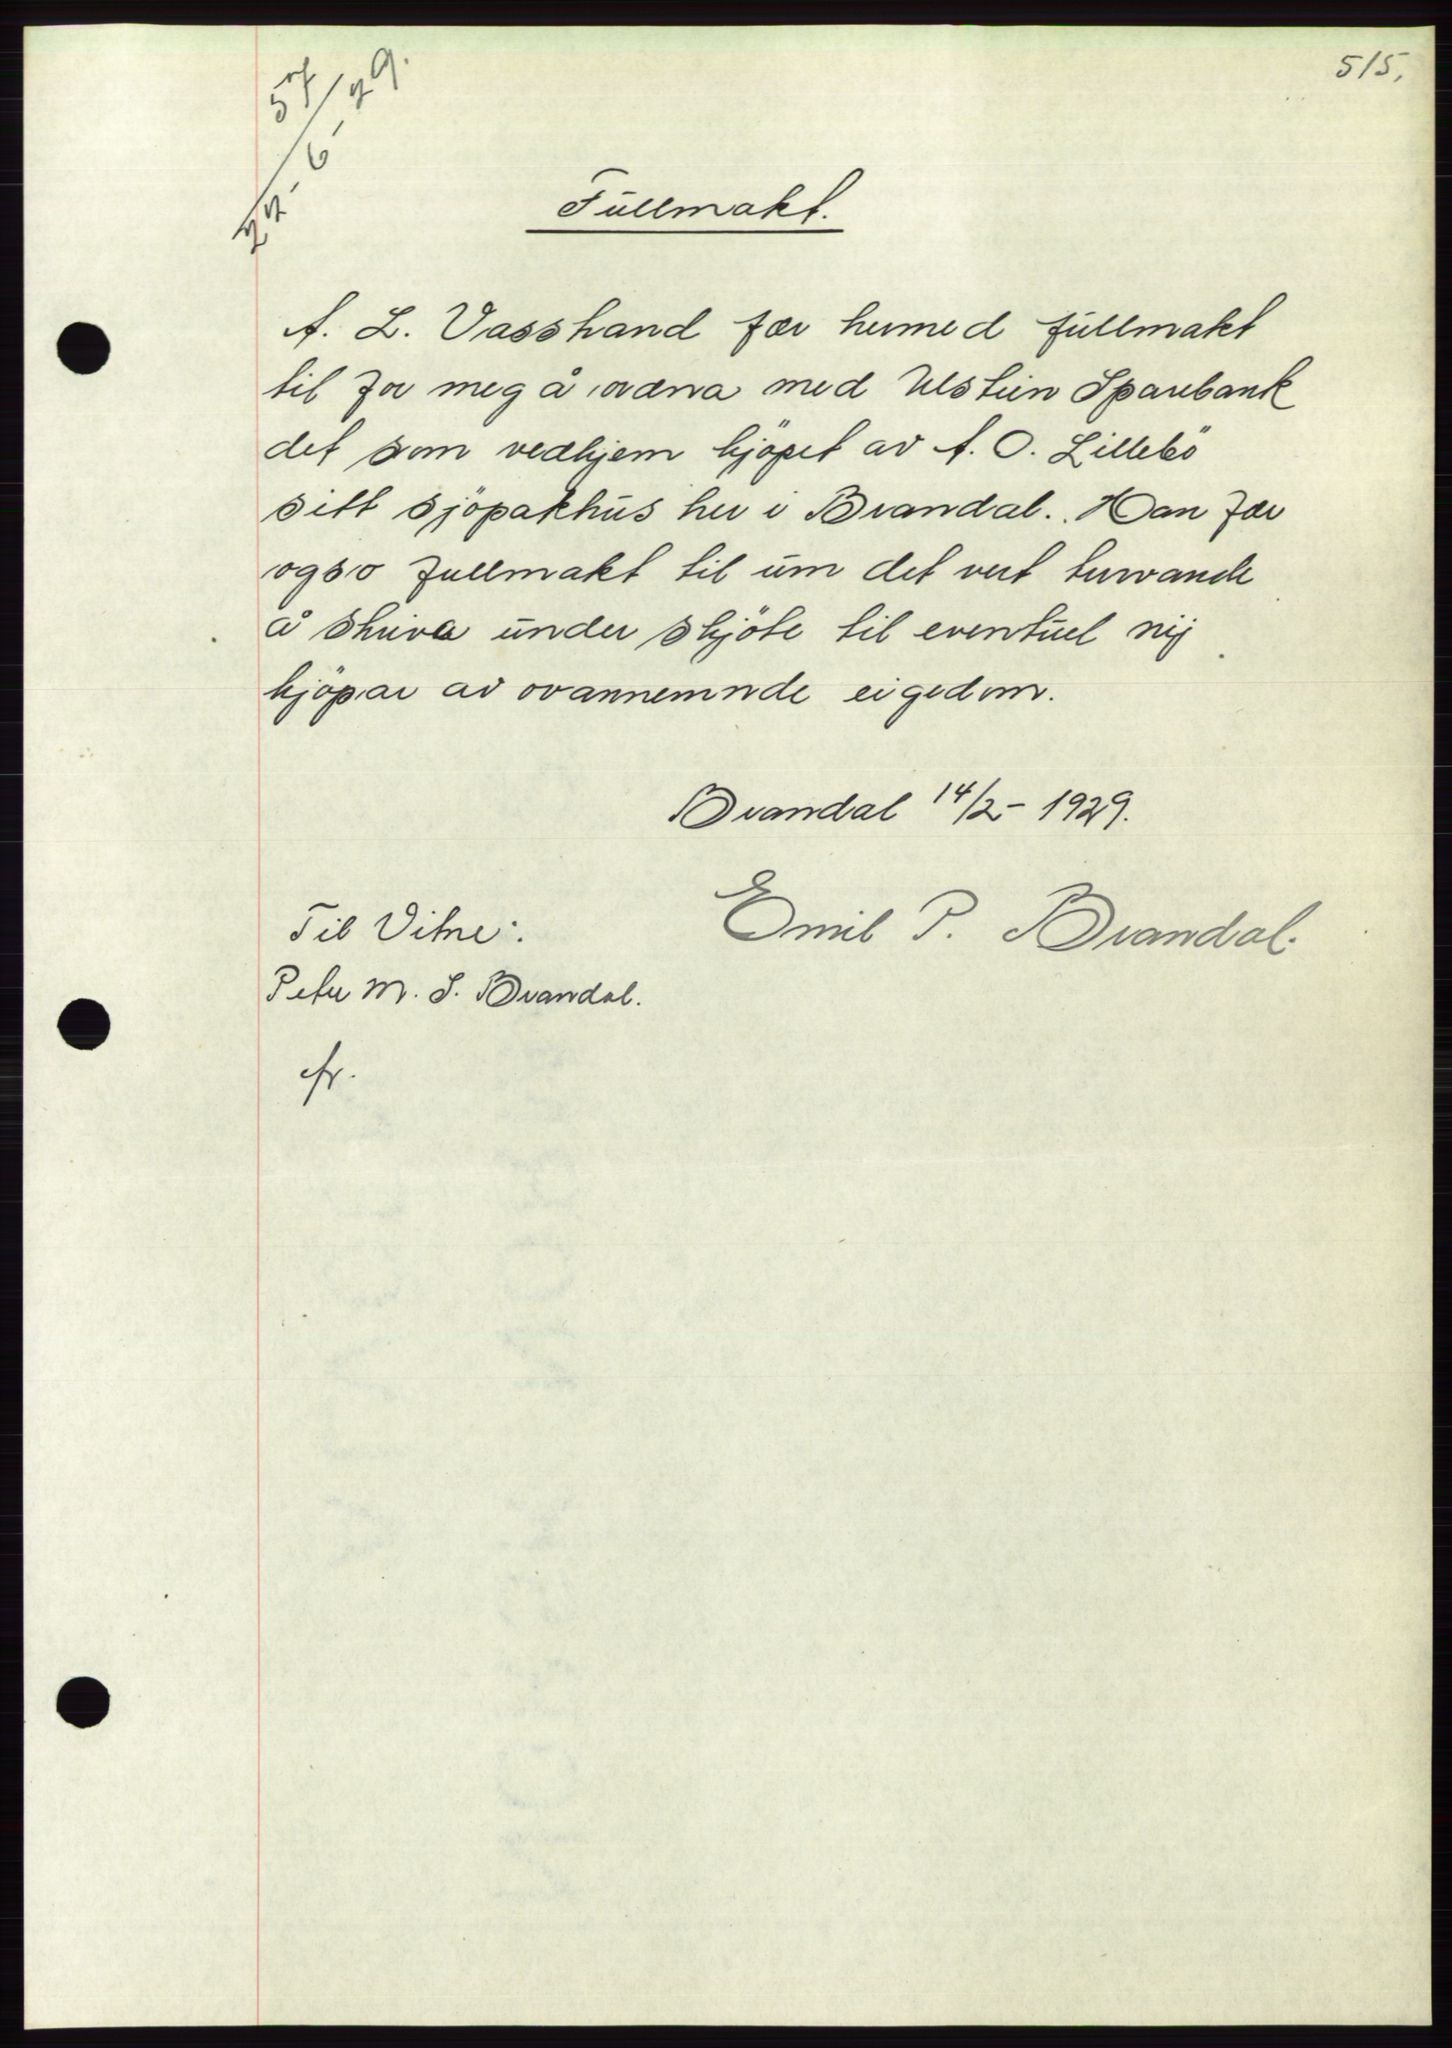 515.
57/22-6-29.
Fullmakt.
A. L. Vasstrand fær hermed fullmakt
til for meg å ordna med Ulstein Sparebank
det som vedkjem kjöpet av A. O. Lillebö
sitt sjöpakhus her i Brandal. Han fær
ogso fullmakt til um det vert turvande
å skriva under skjöte til eventuel nij
kjöpar av ovannemnde eigedom.
Brandal 14/2- 1929.
Emil P. Brandal.
Til Vitne:
Peter M. S. Brandal.